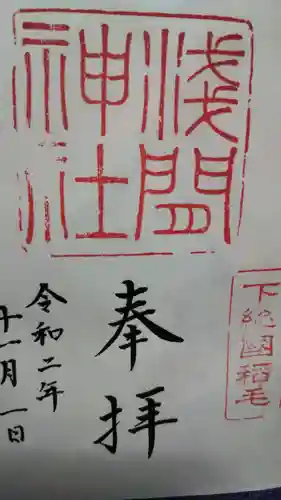 下総國稲毛
浅間
神社
奉拝
令和二年
十一月一日